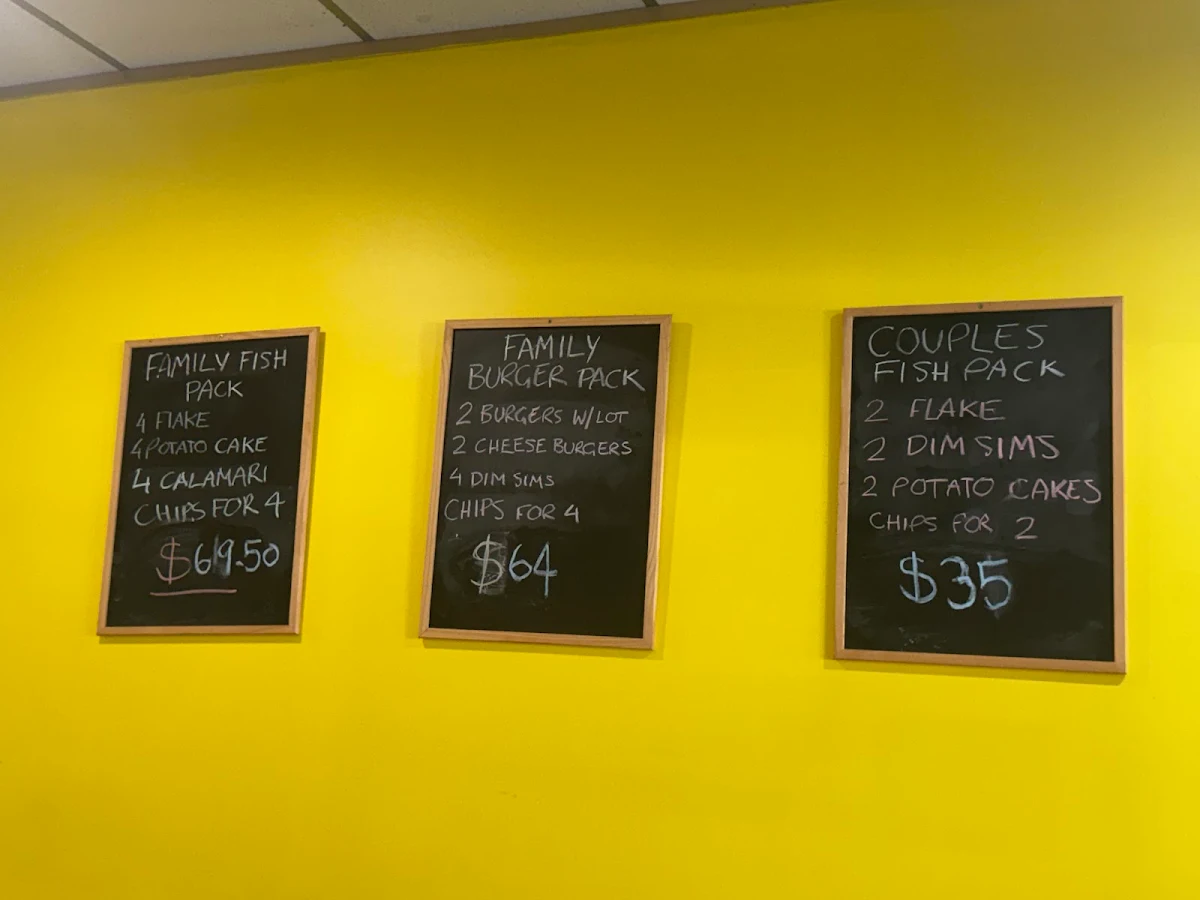 FAMILY FISH
PACK
4 FLAKE
4 POTATO CAKE
4 CALAMARI
CHIPS FOR 4
$69.50
FAMILY
BURGER PACK
2 BURGERS W/LOT
2 CHEESE BURGERS
4 DIM SIMS
CHIPS FOR 4
$64
COUPLES
FISH PACK
2 FLAKE
2 DIM SIMS
2 POTATO CAKES
CHIPS FOR 2
$35